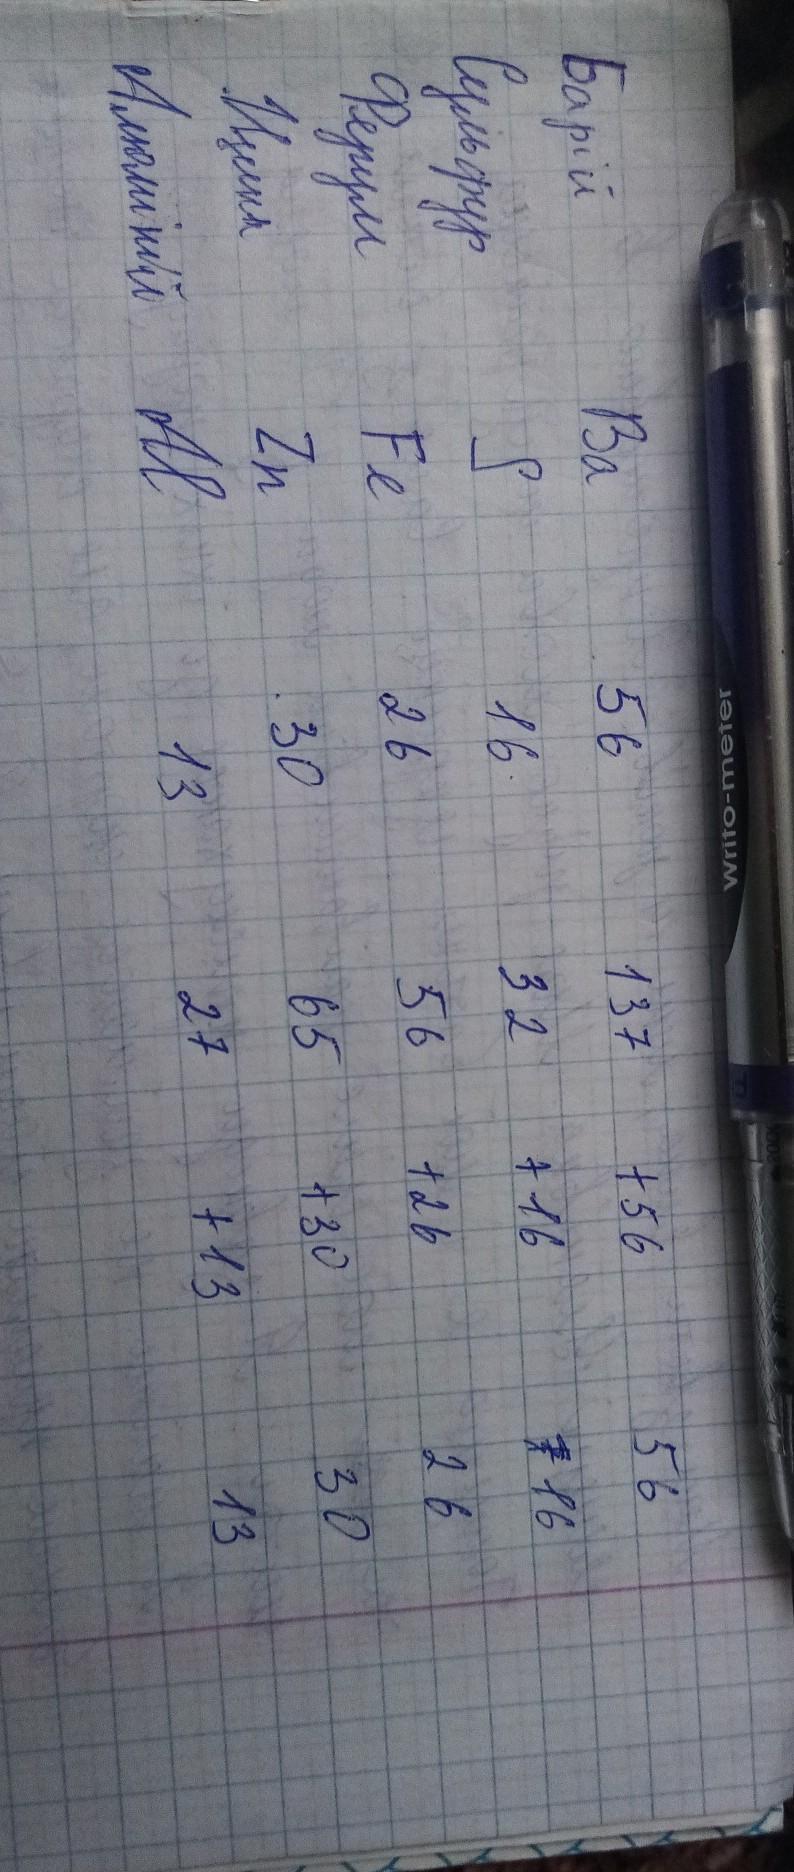 Барій Ba 56 137 +56 56
Сульфур S 16 32 +16 16
Ферум Fe 26 56 +26 26
Цинк Zn 30 65 +30 30
Алюміній Al 13 27 +13 13
writo-meter